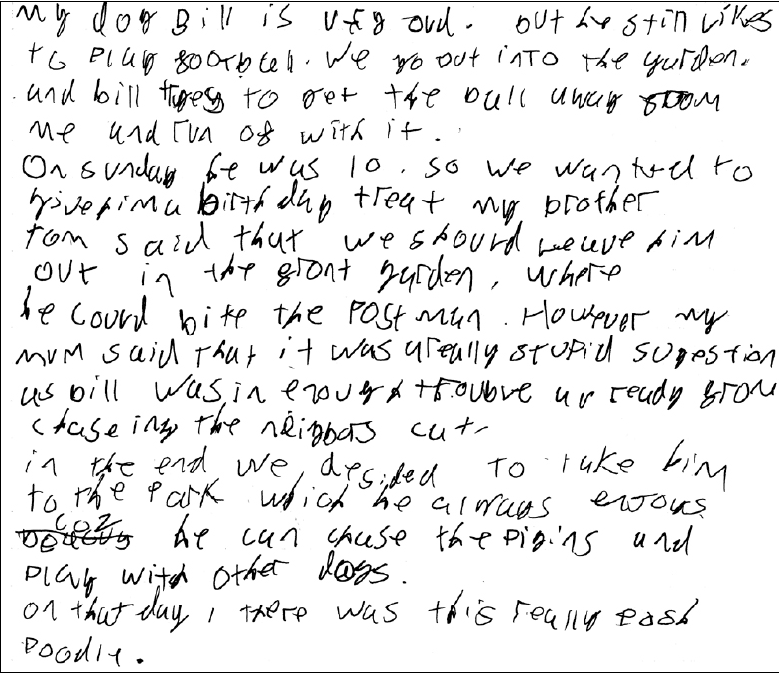 my dog Bill is very old. but he still likes
to play football. We go out into the garden.
and bill tryes to get the ball away from
me and run of with it.
On sunday he was 10. so we wanted to
give him a birthday treat my brother
tom said that we should leave him
out in the front garden, where
he could bite the postman. However my
mum said that it was a really stupid sugestion
as bill was in enough trouble already from
chaseing the neigbors cat.
in the end we desided to take him
to the park which he always enjoys
coz he can chase the pigins and
play with other dogs.
on that day, there was this really posh
Poodle.